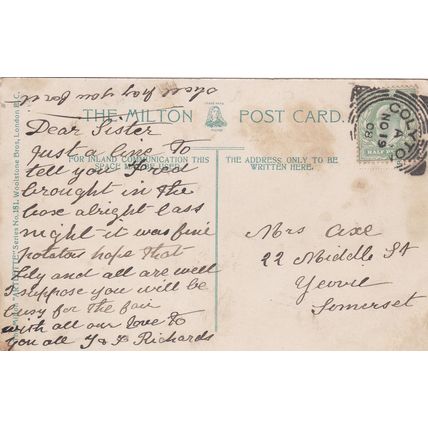 hope you
THE MILTON POST CARD.
TRADE MARK
FOR INLAND COMMUNICATION THIS
SPACE MAY BE USED
THE ADDRESS ONLY TO BE
WRITTEN HERE.
Dear Sister
Just a line to
tell you Fred
brought in the
box alright last
night it was fine
potatoes hope that
and all are well
I suppose you will be
busy for the fair
with all our love to
you all Richards
Mrs Axe
22 Middle St
Yeovil
Somerset
COLYTO
A
NO 19
08
HALF
Series No. 181. Woolstone Bros., London E.C.